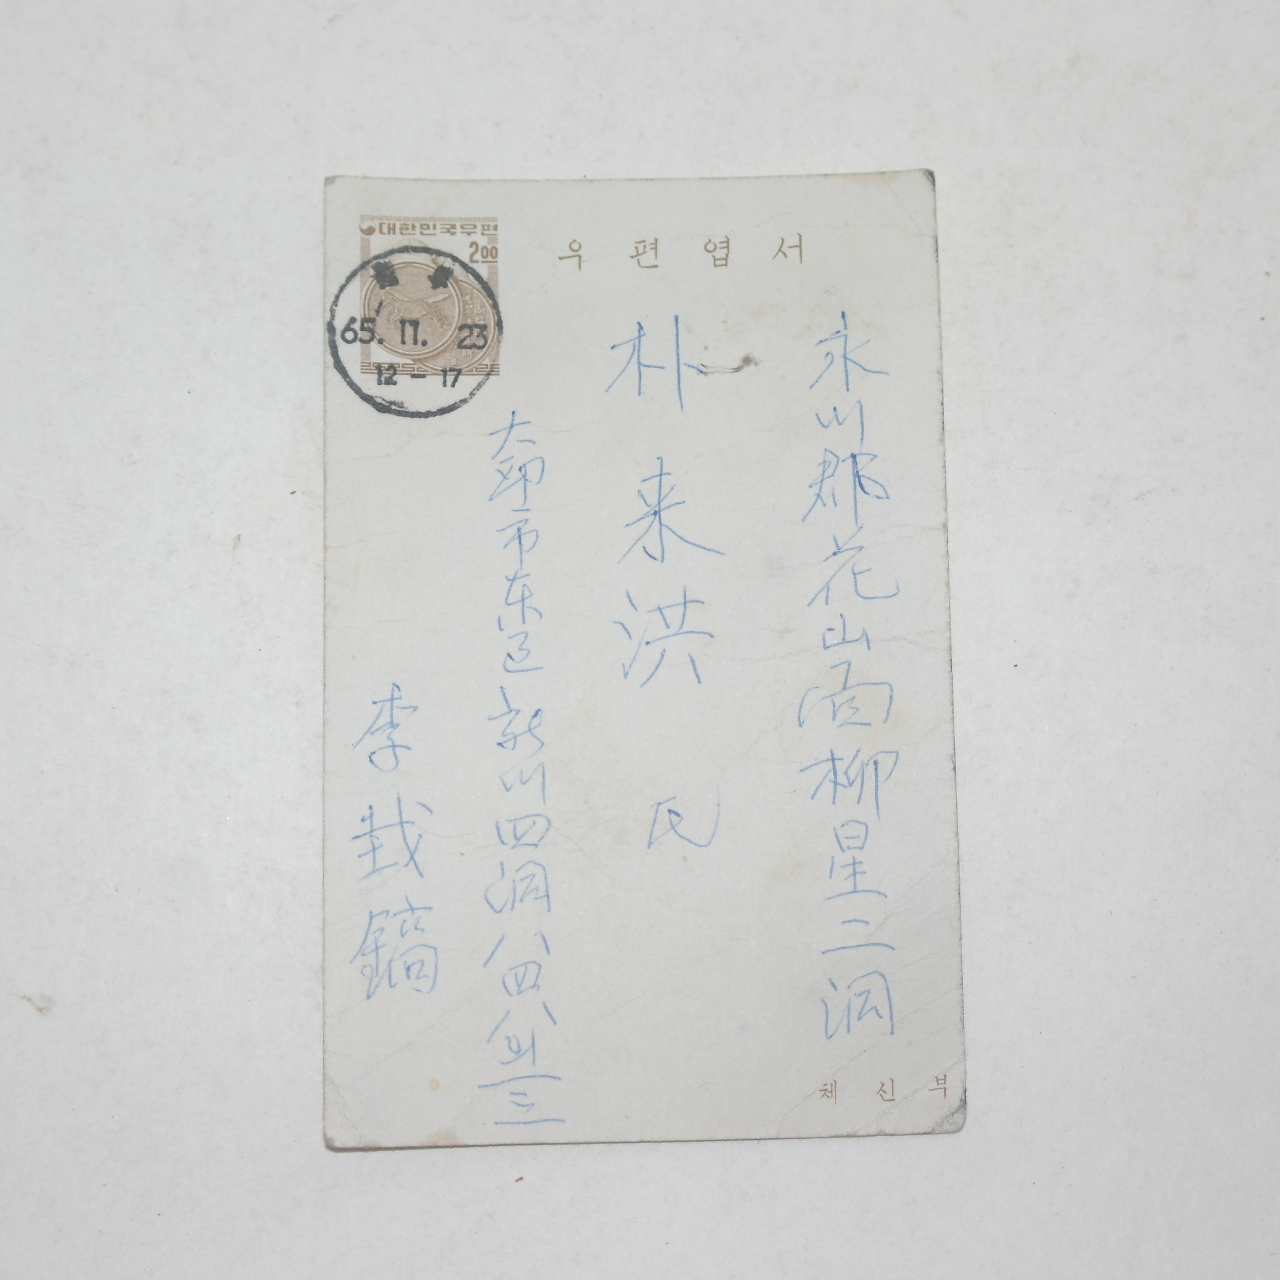 대한민국우편
2.00
우편엽서
65. 11. 23
12-17
永川郡花山面柳星二洞
朴来洪 氏
大邱市东區新川四洞八四八의三
李哉鎬
체신부